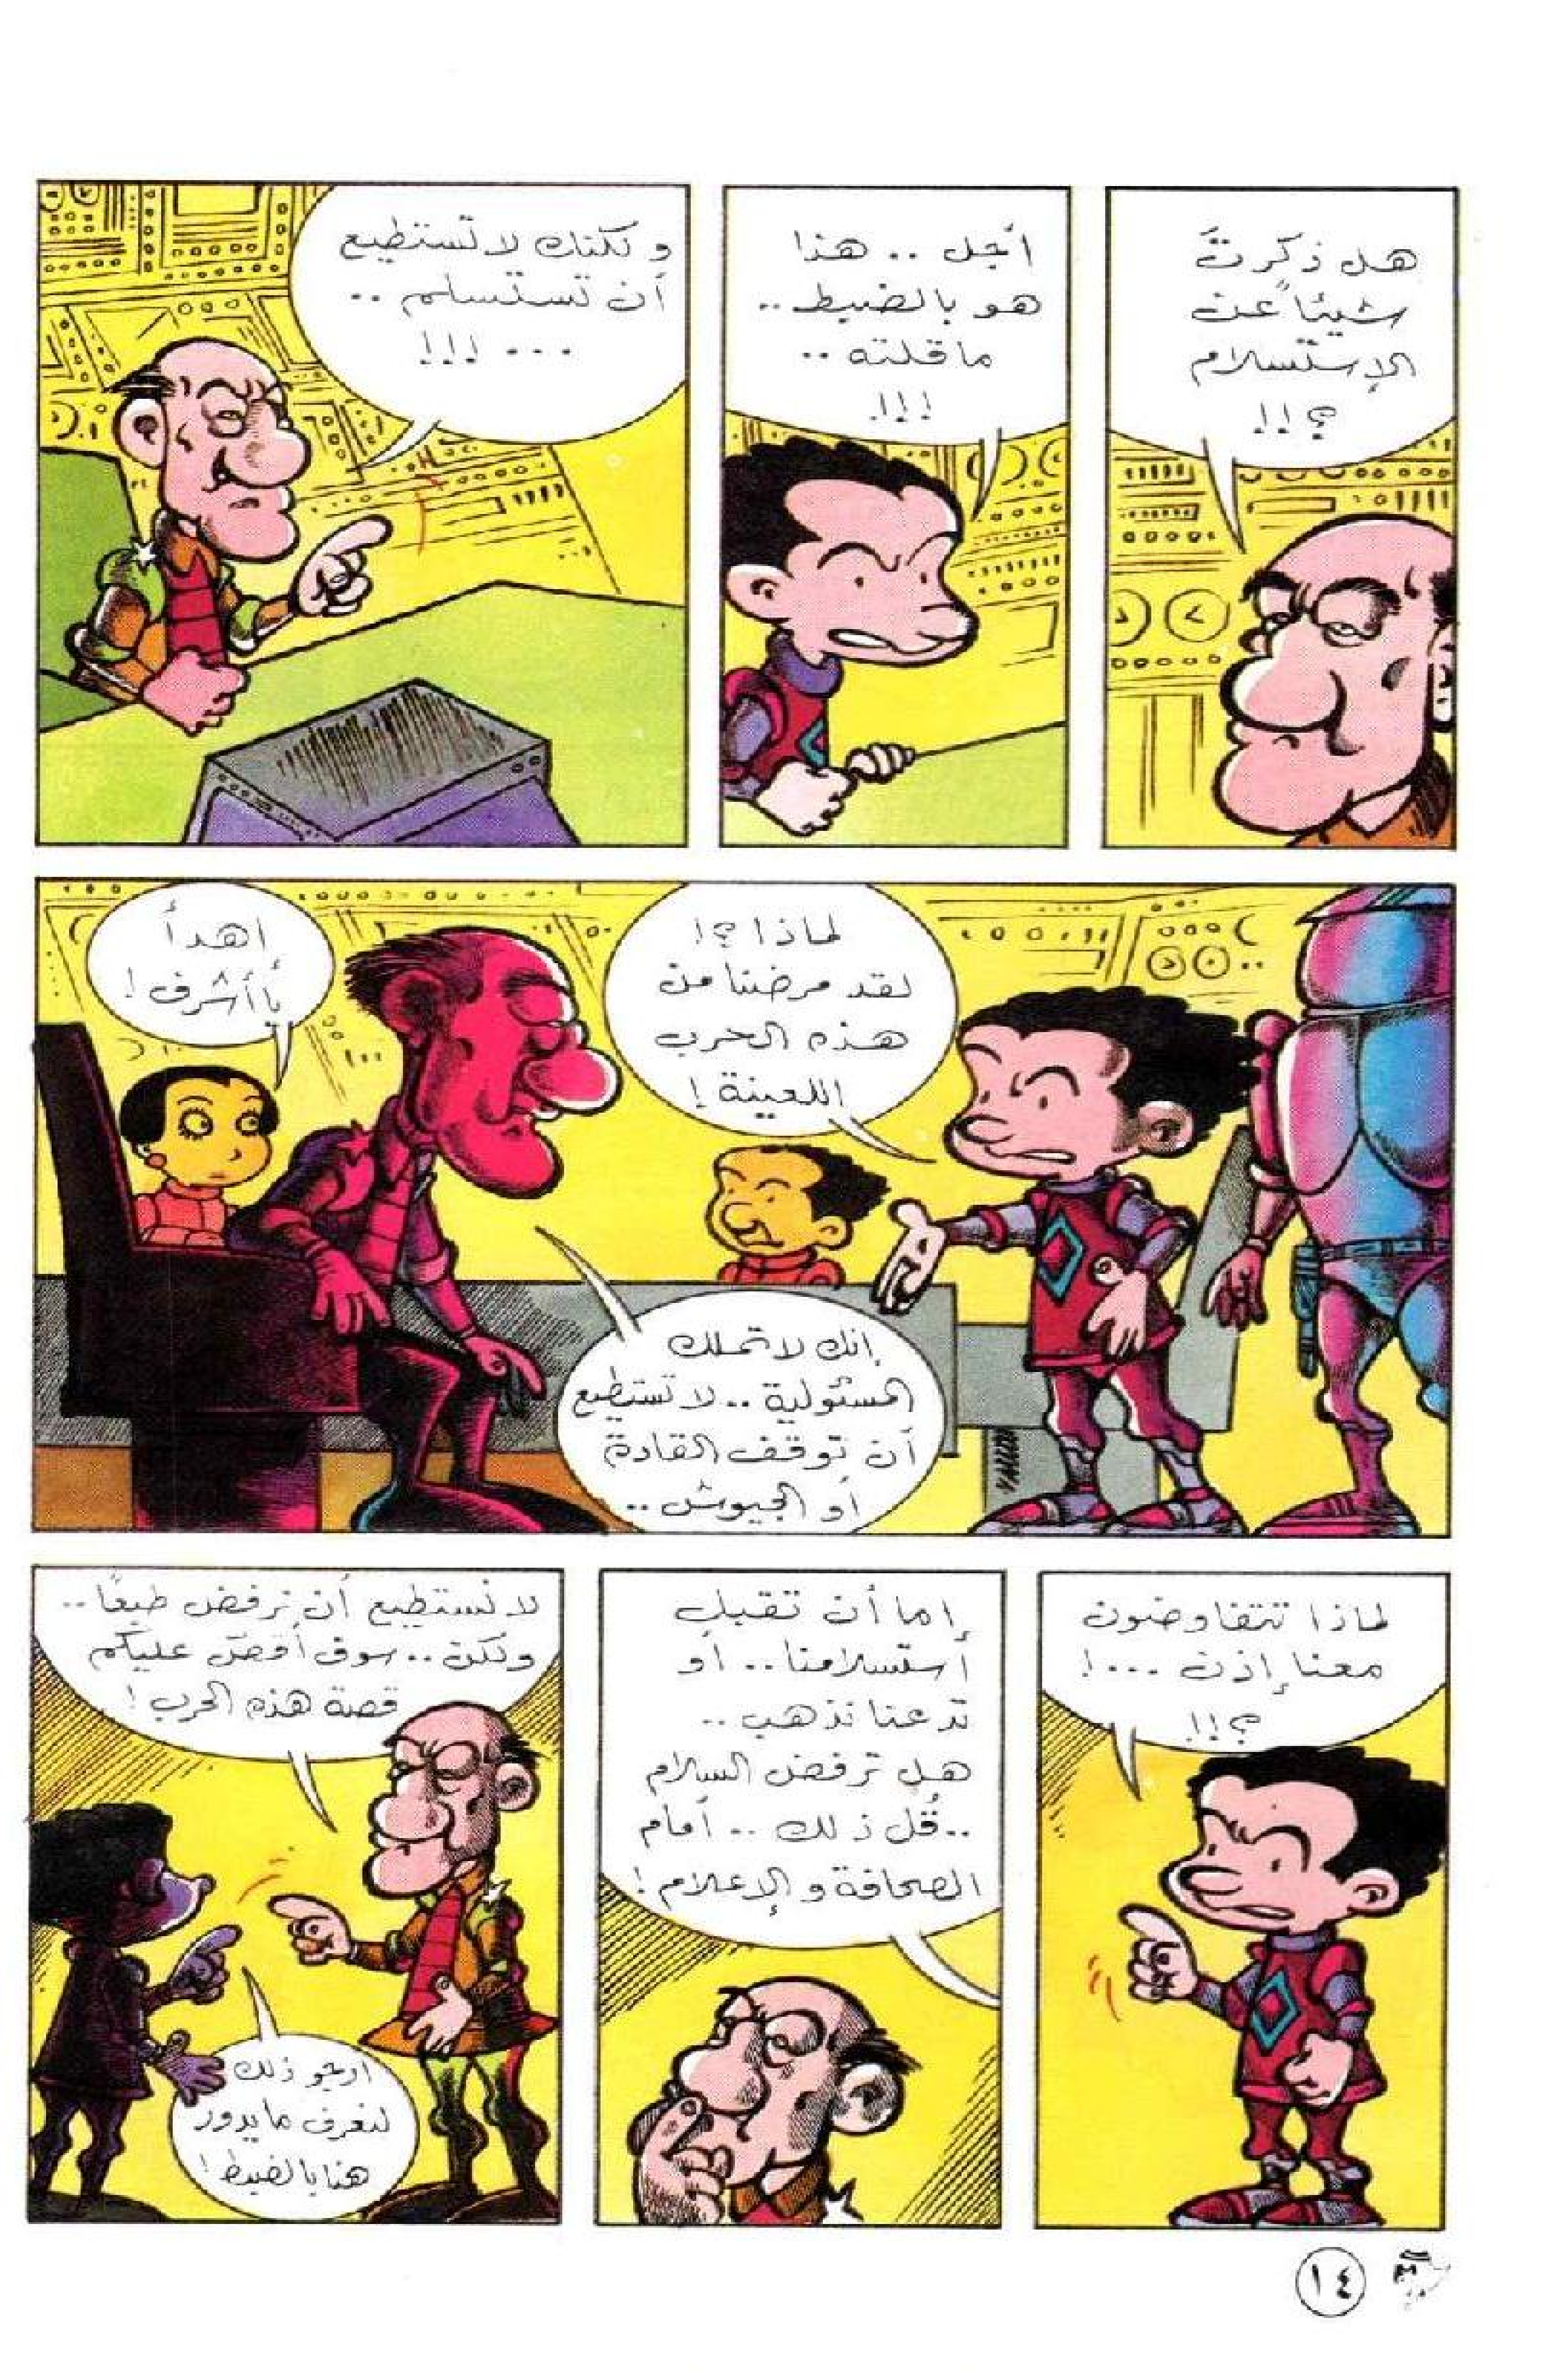 هل ذكرتَ
شيئاً عن
الإستسلام
؟!!
أجل .. هذا
هو بالضبط ..
ما قلته ..
!!!
ولكنك لا تستطيع
أن تستسلم ..
... !!!
لماذا ؟!
لقد مرضنا من
هذه الحرب
اللعينة !
إهدأ
يا أشرف !
إنك لا تملك
المسئولية .. لا تستطيع
أن توقف القادة
أو الجيوش ..
لماذا تتفاوضون
معنا إذن ...!
؟!!
إما أن تقبل
أستسلامنا .. أو
تدعنا نذهب ..
هل ترفض السلام
.. قُل ذلك .. أمام
الصحافة و الإعلام !
لا نستطيع أن نرفض طبعًا ..
ولكن .. سوف أقصّ عليكم
قصة هذه الحرب !
ارجو ذلك
لنعرف ما يدور
هنا بالضبط !
١٤